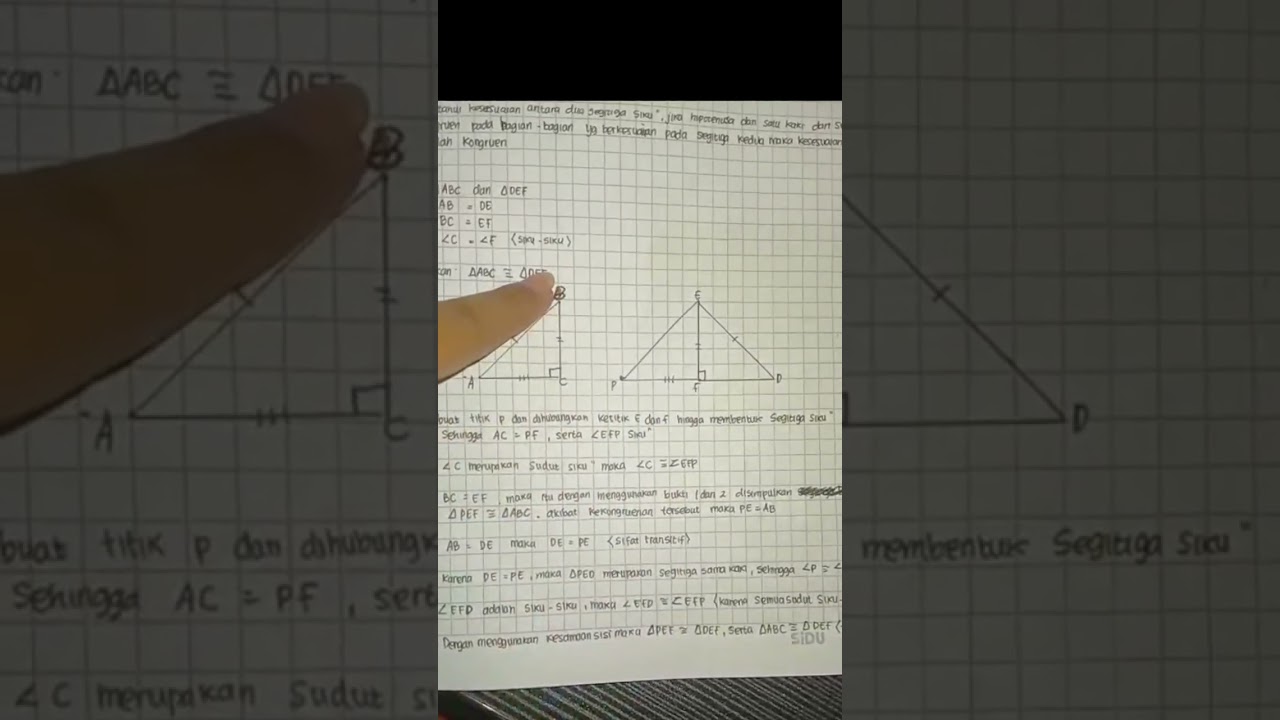 kesesuaian antara dua segitiga siku", jika hipotenusa dan satu kaki dari
pada bagian-bagian yg berkesuaian pada segitiga kedua maka kesesuaian
lah kongruen
ABC dan ΔDEF
AB = DE
BC = EF
∠C = ∠F (siku-siku)
kan: ΔABC ≅ ΔDEF
B
E
A
C
P
F
D
buat titik p dan dihubungkan ketitik E dan f hingga membentuk Segitiga siku"
Sehingga AC = PF, serta ∠EFP Siku"
∠C merupakan Sudut siku" maka ∠C ≅ ∠EFP
BC = EF, maka itu dengan menggunakan bukti 1 dan 2 disimpulkan
ΔPEF ≅ ΔABC. akibat kekongruenan tersebut maka PE = AB
AB = DE maka DE = PE (sifat transitif)
Karena DE = PE, maka ΔPED merupakan segitiga sama kaki, sehingga ∠P ≅ ∠
∠EFD adalah siku-siku, maka ∠EFD ≅ ∠EFP (karena semua sudut siku-
Dengan menggunakan kesamaan sisi maka ΔPEF ≅ ΔDEF, serta ΔABC ≅ ΔDEF (
SiDU
kan: ΔABC ≅ ΔDEF
B
A
C
D
buat titik p dan dihubungk
membentuk Segitiga siku"
Sehingga AC = PF, sert
∠C merupakan Sudut si